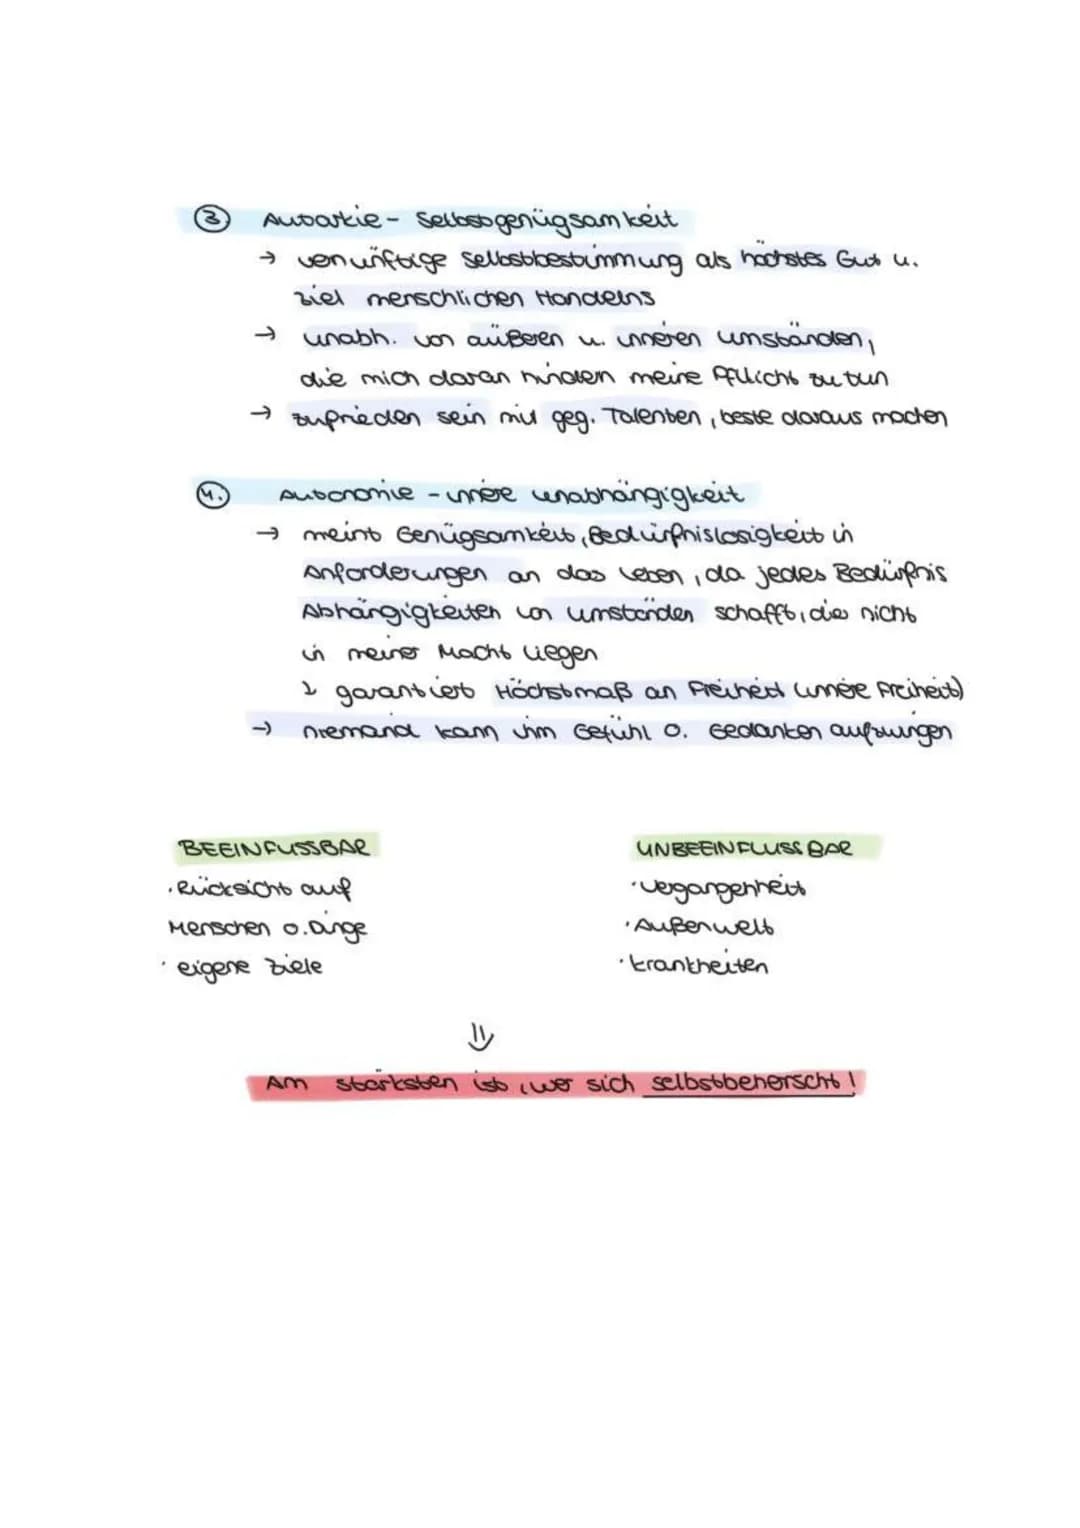 3. Autarkie - Selbstgenügsamkeit
→ vernünftige Selbstbestimmung als höchstes Gut u.
Ziel menschlichen Handelns
→ unabh. von äußeren u. inneren Umständen,
die mich daran hindern meine Pflicht zu tun
→ zufrieden sein mit geg. Talenten, beste daraus machen
4. Autonomie - innere Unabhängigkeit
→ meint Genügsamkeit, Bedürfnislosigkeit in
Anforderungen an das Leben, da jedes Bedürfnis
Abhängigkeiten von Umständen schafft, die nicht
in meiner Macht liegen
↳ garantiert Höchstmaß an Freiheit (innere Freiheit)
→ niemand kann ihm Gefühl o. Gedanken aufzwingen
BEEINFUSSBAR
UNBEEINFLUSSBAR
· Rücksicht auf
Menschen o. Dinge
· eigene Ziele
· Vergangenheit
· Außenwelt
· Krankheiten
⇓
Am stärksten ist, wer sich selbstbeherscht!